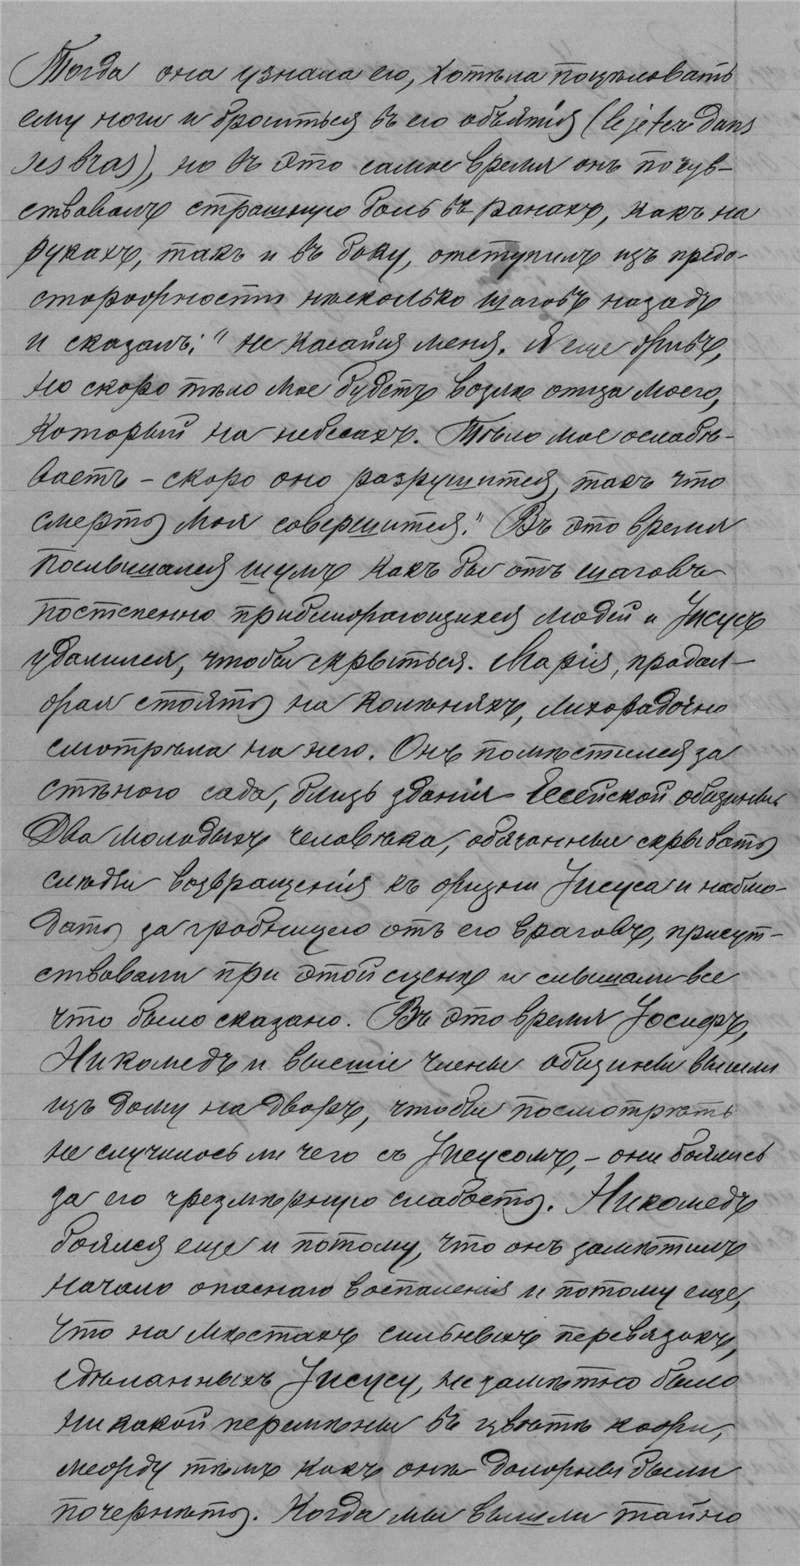 Тогда она узнала его, хотѣла поцѣловать
ему ноги и броситься въ его объятія (se jeter dans
ses bras), но въ это самое время онъ почув-
ствовалъ страшную боль въ ранахъ, какъ на
рукахъ, такъ и въ боку, отступилъ изъ предо-
сторожности нѣсколько шаговъ назадъ
и сказалъ: "не касайся меня. Я еще живъ,
но скоро тѣло мое будетъ возлѣ отца моего,
который на небесахъ. Тѣло мое ослабѣ-
ваетъ – скоро оно разрушится, такъ что
смерть моя совершится." Въ это время
послышался шумъ какъ бы отъ шаговъ
постепенно приближающихся людей и Іисусъ
удалился, чтобы скрыться. Марія, продол-
жая стоять на колѣняхъ, лихорадочно
смотрѣла на него. Онъ помѣстился за
стѣною сада, близь зданія Ессейской общины.
Два молодыхъ человѣка, обязанные скрывать
слѣды возвращенія къ жизни Іисуса и наблю-
дать за гробницею отъ его враговъ, присут-
ствовали при этой сценѣ и слышали все
что было сказано. Въ это время Іосифъ,
Никомедъ и высшіе члены общины вышли
изъ дому на дворъ, чтобы посмотрѣть
не случилось ли чего съ Іисусомъ, – они боялись
за его чрезмѣрную слабость. Никомедъ
боялся еще и потому, что онъ замѣтилъ
начало опаснаго воспаленія и потому еще,
что на мѣстахъ сильныхъ перевязокъ,
сдѣланныхъ Іисусу, не замѣтно было
никакой перемѣны въ цвѣтѣ кожи,
между тѣмъ какъ онѣ должны были
почернѣть. Когда мы вышли тайно